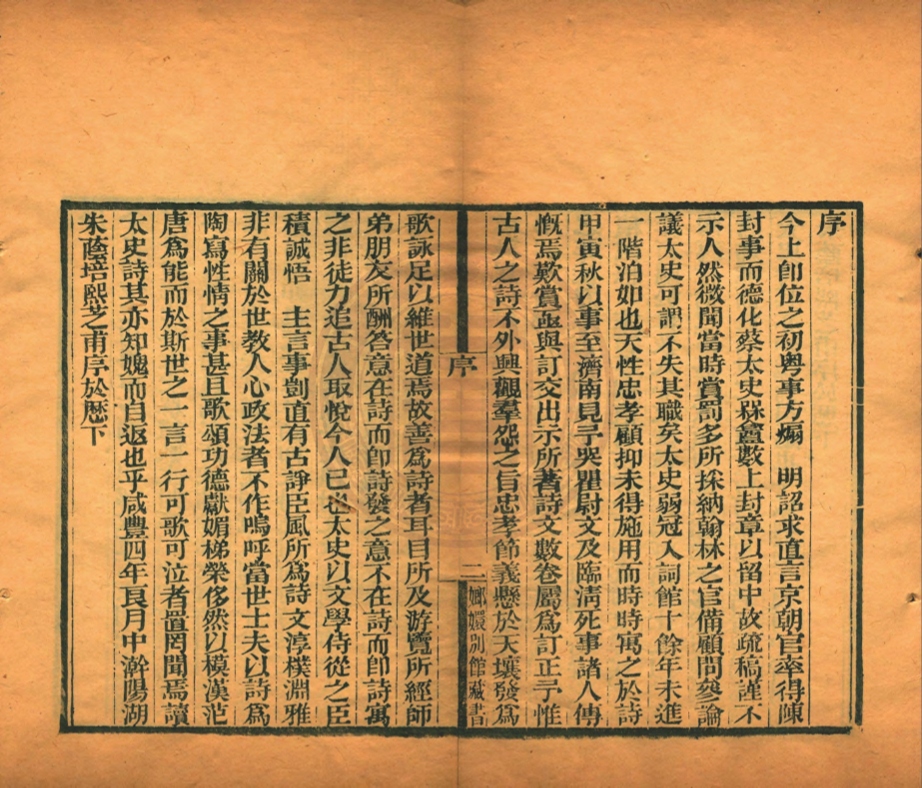 序
今上卽位之初粵事方煽 明詔求直言京朝官率得陳
封事而德化蔡太史槑盦數上封章以留中故疏稿謹不
示人然微聞當時賞罰多所採納翰林之官備顧問參論
議太史可謂不失其職矣太史弱冠入詞館十餘年未進
一階泊如也天性忠孝顧抑未得施用而時時寓之於詩
甲寅秋以事至濟南見予哭瞿尉文及臨清死事諸人傳
慨焉歎賞亟與訂交出示所著詩文數卷屬爲訂正予惟
古人之詩不外興觀羣怨之旨忠孝節義懸於天壤發爲
序
二
嫏嬛別館藏書
歌詠足以維世道焉故善爲詩者耳目所及游覽所經師
弟朋友所酬答意在詩而卽詩發之意不在詩而卽詩寓
之非徒力追古人取悅今人已也太史以文學侍從之臣
積誠悟 主言事剴直有古諍臣風所爲詩文淳樸淵雅
非有關於世教人心政法者不作嗚呼當世士夫以詩爲
陶寫性情之事甚且歌頌功德獻媚梯榮侈然以模漢范
唐爲能而於斯世之一言一行可歌可泣者置罔聞焉讀
太史詩其亦知媿而自返也乎咸豐四年艮月中澣陽湖
朱蔭培熙芝甫序於歷下